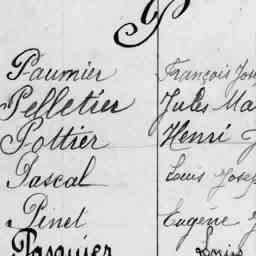 P
Paumier François Jos
Pelletier Jules Ma
Pottier Henri J
Pascal Louis Josep
Pinel Eugène
Pasquier Louis